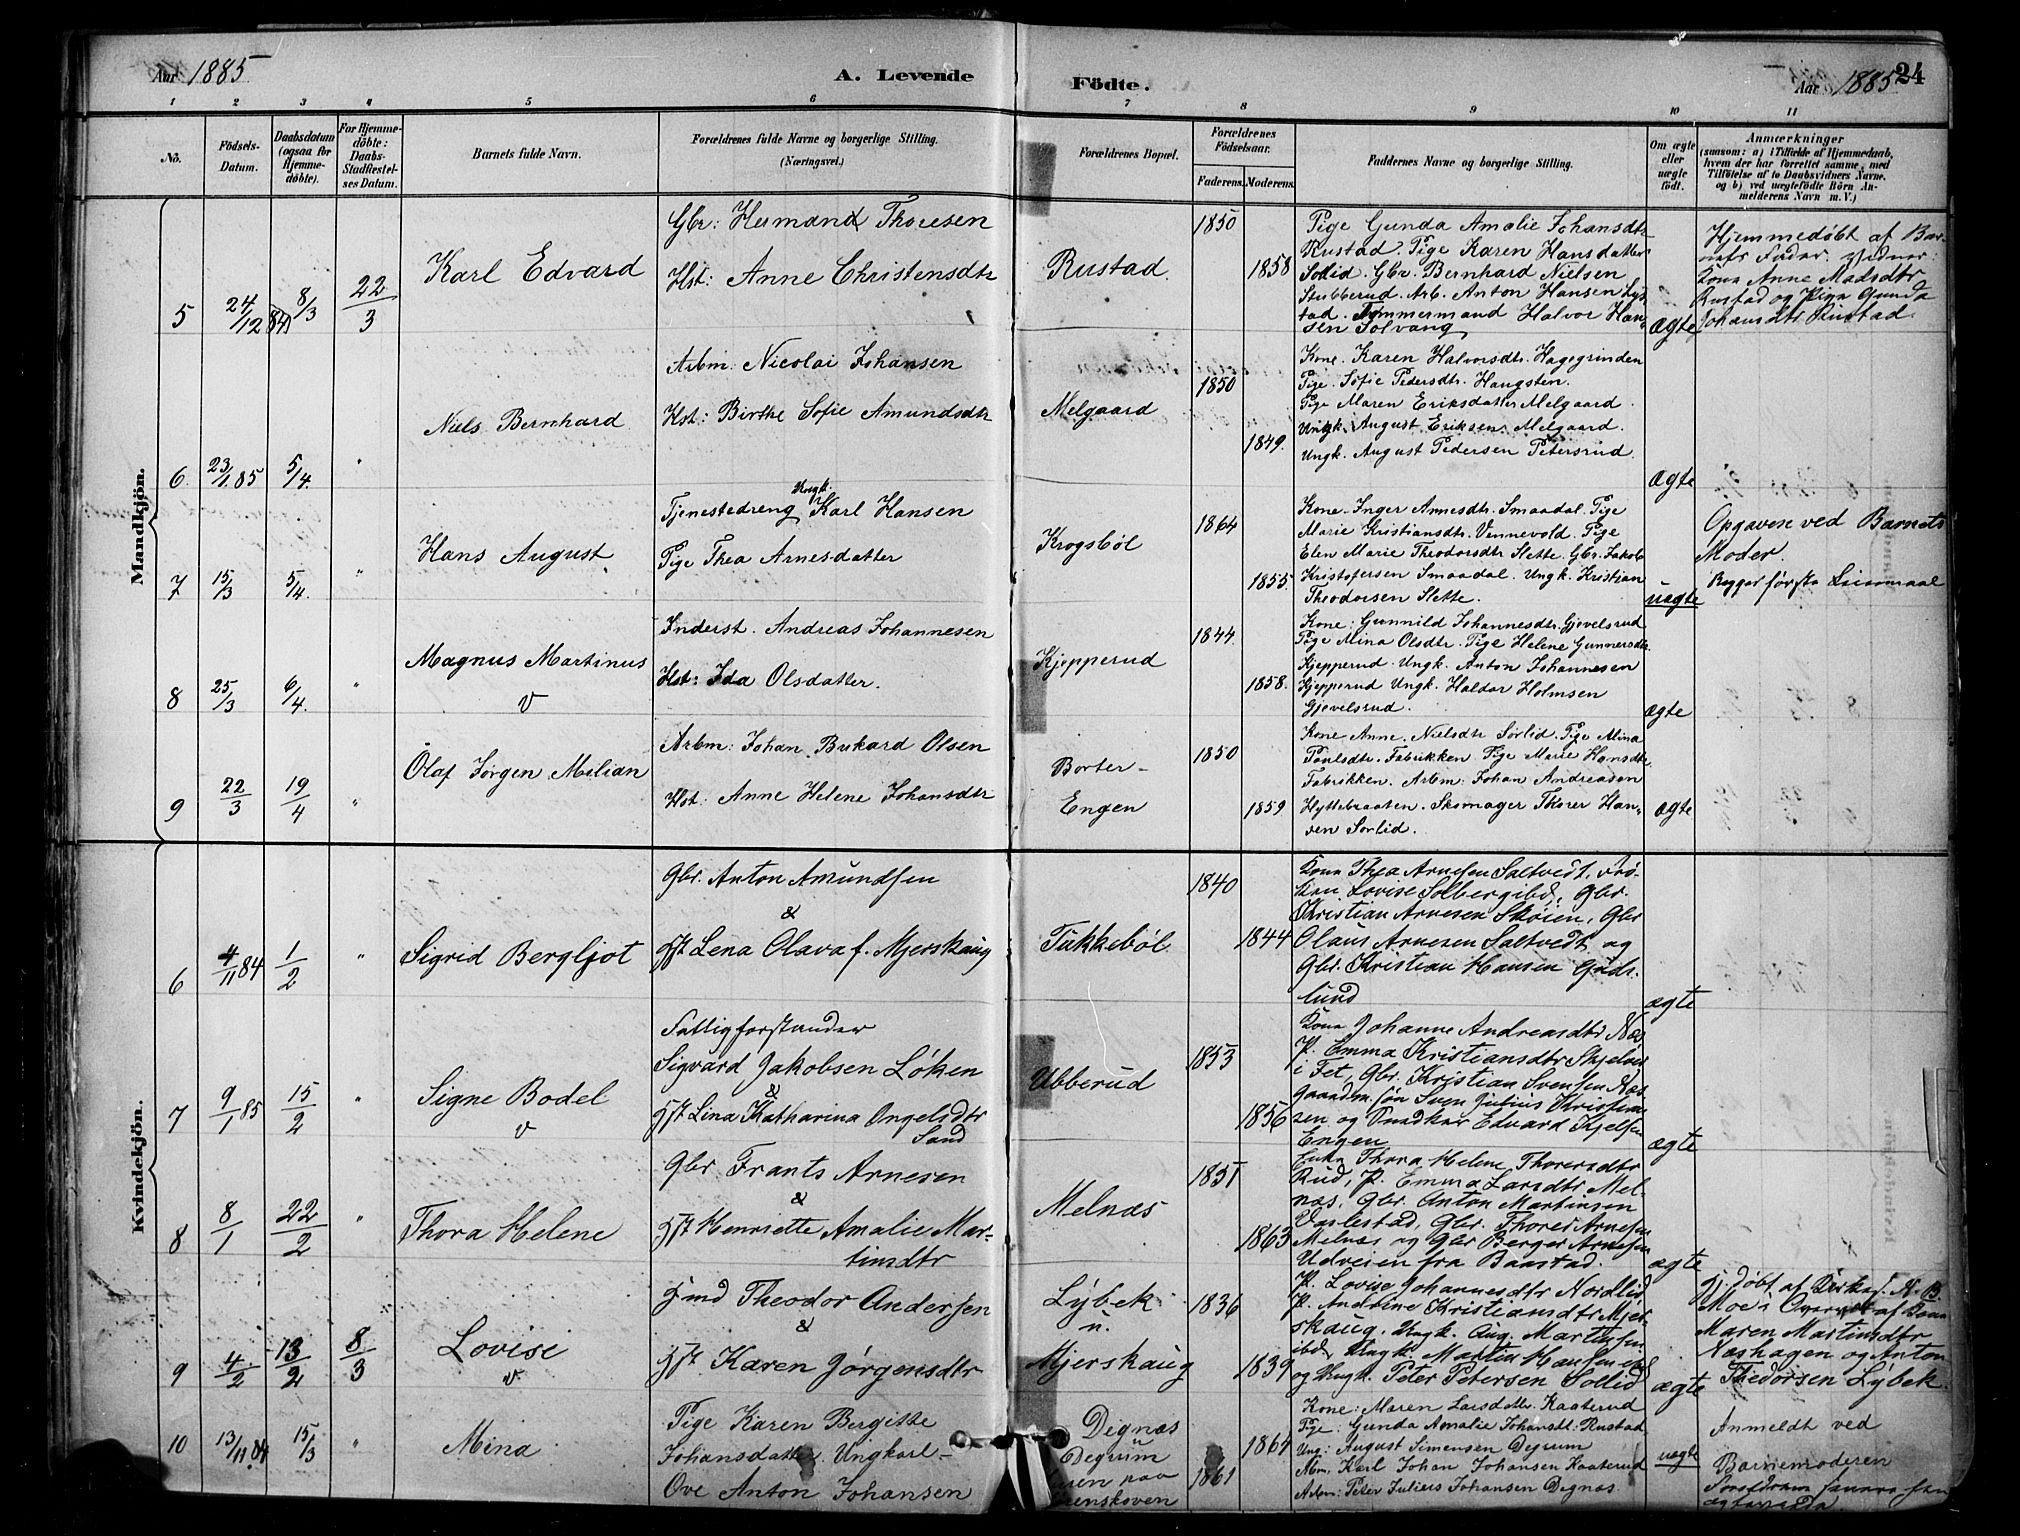 Aar 1885
A. Levende
Födte.
Aar 1885
24
1 2 3 4 5 6 7 8 9 10 11
No.
Födsels-
Datum.
Daabsdatum
(ogsaa for
Hjemme-
döbte).
For Hjemme-
döbte:
Daabs-
Stadfæstel-
ses Datum.
Barnets fulde Navn.
Forældrenes fulde Navne og borgerlige Stilling.
(Næringsvei.)
Forældrenes Bopæl.
Forældrenes
Födselsaar.
Faderens. Moderens.
Faddernes Navne og borgerlige Stilling.
Om ægte
eller
uægte
födt.
Anmærkninger
(saasom: a) i Tilfælde af Hjemmedaab,
hvem der har forrettet samme, med
Tilföielse af to Daabsvidners Navne,
og b) ved uægtefödte Börn An-
melderens Navn m. V.)
Mandkjön.
5
24/12 (84)
8/3
22/3
Karl Edvard
Gbr: Hermand Thoresen
Hst: Anne Christensdtr
Rustad.
1850
1858
Pige Gunda Amalie Johansdtr
Rustad. Pige Karen Hansdatter
Sollid. Gbr. Bernhard Nielsen
Stubberud. Arb. Anton Hansen Lys-
tad. Tømmermand Halvor Han-
sen Solvang
Ægte
Hjemmedøbt af Bar-
nets Fader. Vidner:
Kona Anne Madsdtr
Rustad og Pige Gunda
Johansdtr Rustad.
6.
23/1 85
5/4
"
Niels Bernhard
Arbm: Nicolai Johansen
Hst: Birthe Sofie Amundsdtr
Melgaard
1850
1849.
Kone. Karen Halvorsdtr. Hagegrinden
Pige. Sofie Pedersdtr. Haugsten.
Pige Maren Eriksdatter Melgaard
Ungk. August Eriksen Melgaard.
Ungk. August Pedersen Petersrud.
Ægte
7
15/3
5/4.
"
Hans August
Tjenestedreng Ungk. Karl Hansen
Pige Thea Arnesdatter
Krogsbøl
1864
1855.
Kone. Inger Annesdtr. Smaadal. Pige
Marie Kristiansdtr. Vennevold. Pige
Elen Marie Theodorsdtr Slette. Gbr. Jakob
Kristofersen Smaadal. Ungk. Kristian
Theodorsen Slette.
uægte
Opgavese ved Barnets
Moder.
Begges første Leiermaal
8
25/3
6/4.
"
Magnus Martinus
v
Inderst. Andreas Johannesen
Hst: Ida Olsdatter.
Kjepperud
1844.
1858.
Kone: Gunnild Johannesdtr. Gjevelsrud
Pige Mina Olsdtr. Pige Helene Gunnersdtr.
Kjepperud. Ungk. Anton Johannesen
Kjepperud Ungk. Haldor Holmsen
Gjevelsrud.
ægte
9
22/3
19/4
"
Olaf Jørgen Milian
Arbm: Johan Bukard Olsen
Hst: Anne Helene Johansdtr
Borter-
Engen
1850
1859
Kone Anne. Nielsdtr Sørlid. Pige Mina
Paulsdtr. Fabrikken. Pige Marie Hansdtr,
Fabrikken. Arbm: Johan Andreasen
Hyttebraaten. Skomager Thorer Han-
sen Sørlid.
ægte
Kvindekjön.
6
4/11 84
1/2
"
Sigrid Bergljot
Gbr. Anton Amundsen
&
Hst Lena Olava f. Mjerskaug
Tukkebøl.
1840
1844
Kona Thea Arnesen Saltvedt, Frø-
ken Lovise Solberg ibd, Gbr.
Kristian Arnesen Skøien, Gbr
Olaus Arnesen Saltvedt og
Gbr. Kristian Hansen
lund
ægte
7
9/1 85
15/2
"
Signe Bodel
v
Fattigforstander
Sigvard Jakobsen Løken
&
Hst Lina Katharina Engelsdtr
Sand
Ubberud
1853
1856
Kona Johanne Andreasdtr Næs
P. Emma Kristiansdtr
i Fet, Gbr. Kristian Svensen Næs
Gaardm.søn Sven Julius Kristian-
sen og Snedker Edvard Kjelsen
Engen
ægte
8
8/1
22/2
"
Thora Helene
Gbr Frants Arnesen
&
Hst Henriette Amalie Mar-
tinsdtr
Melnæs
1851
1863
Enke Thora Helene Thorersdtr
Rud, P. Emma Larsdtr Mel-
næs, Gbr. Anton Martinsen
Vaslestad, Gbr. Thorer Arnesen
Melnæs og Gbr Berger Arnesen
Udveien fra Baastad.
ægte
9
4/2
13/2
8/3
Lovise
v
Ind Theodor Andersen
&
Hst Karen Jørgensdtr
Lybek
u.
Mjerskaug
1836
1839
P. Lovise Johannesdtr Nordlid
P. Andrine Kristiansdtr Mjer-
skaug, Ungk. Aug. Martinsen
ibd, Ungk. Martin Hansen ibd
og Ungk. Peter Petersen Sollid
ægte
Hj. døbt af Kirkes. N. B.
Moe i Overvær af
Maren Martinsdtr
Næshagen og Anton
Thedorsen Lybek.
10
13/11 84
15/3
"
Mina
Pige Karen Bergitte
Johansdatter Ungkarl-
Ove Anton Johansen
Degnæs
u
Degrum
1864
1861
Kone: Maren Larsdatter Kaaterud
Pige: Gunda Amalie Johansdtr. Rustad
Ung: August Simensen Degrum
Karl Johan Johansen Kaaterud
Arbm: Peter Juliers Johansen Degnæs
uægte
Anmeldt ved
Barnemoderen